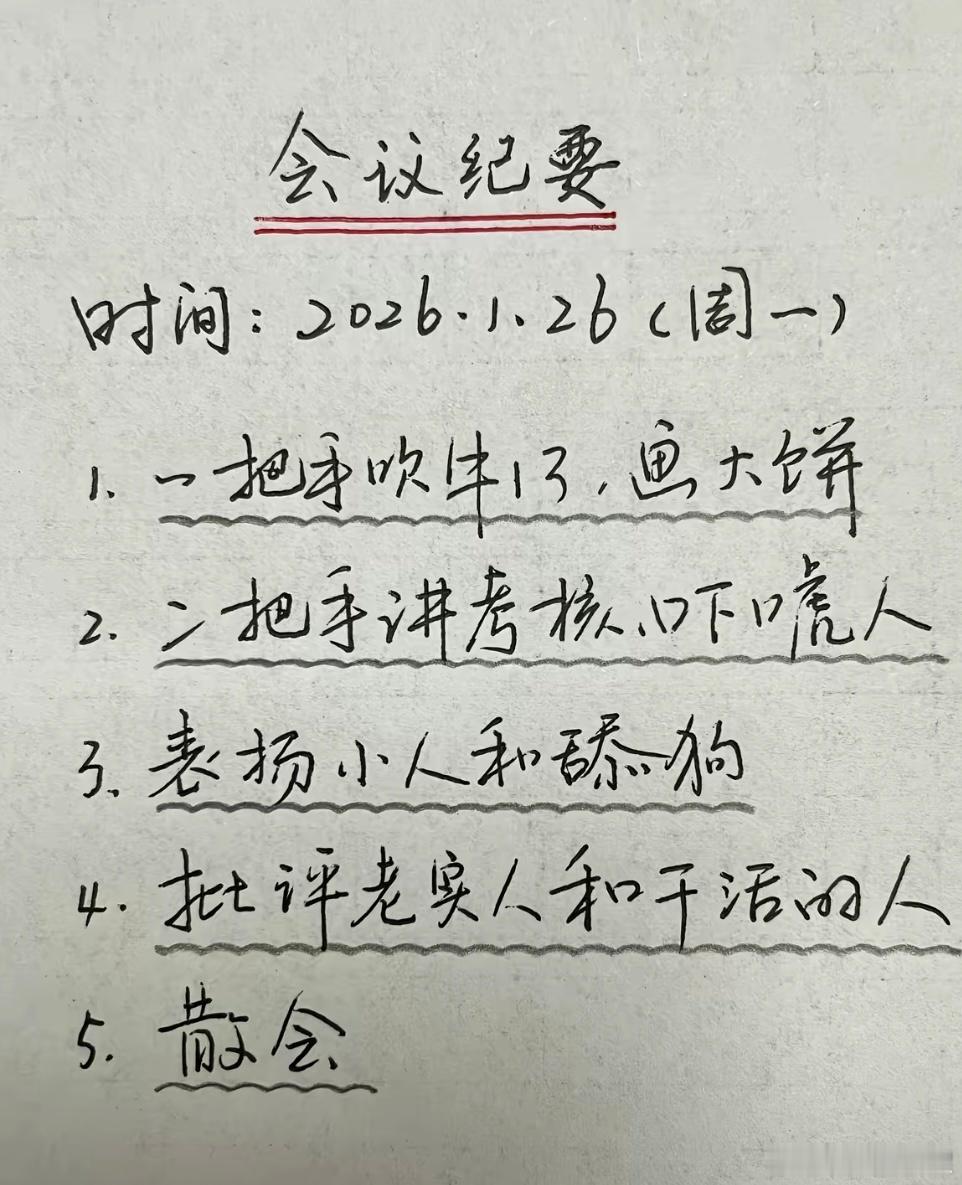 会议纪要
时间：2026.1.26（周一）
1. 一把手吹牛13，画大饼
2. 二把手讲考核、吓唬人
3. 表扬小人和舔狗
4. 批评老实人和干活的人
5. 散会